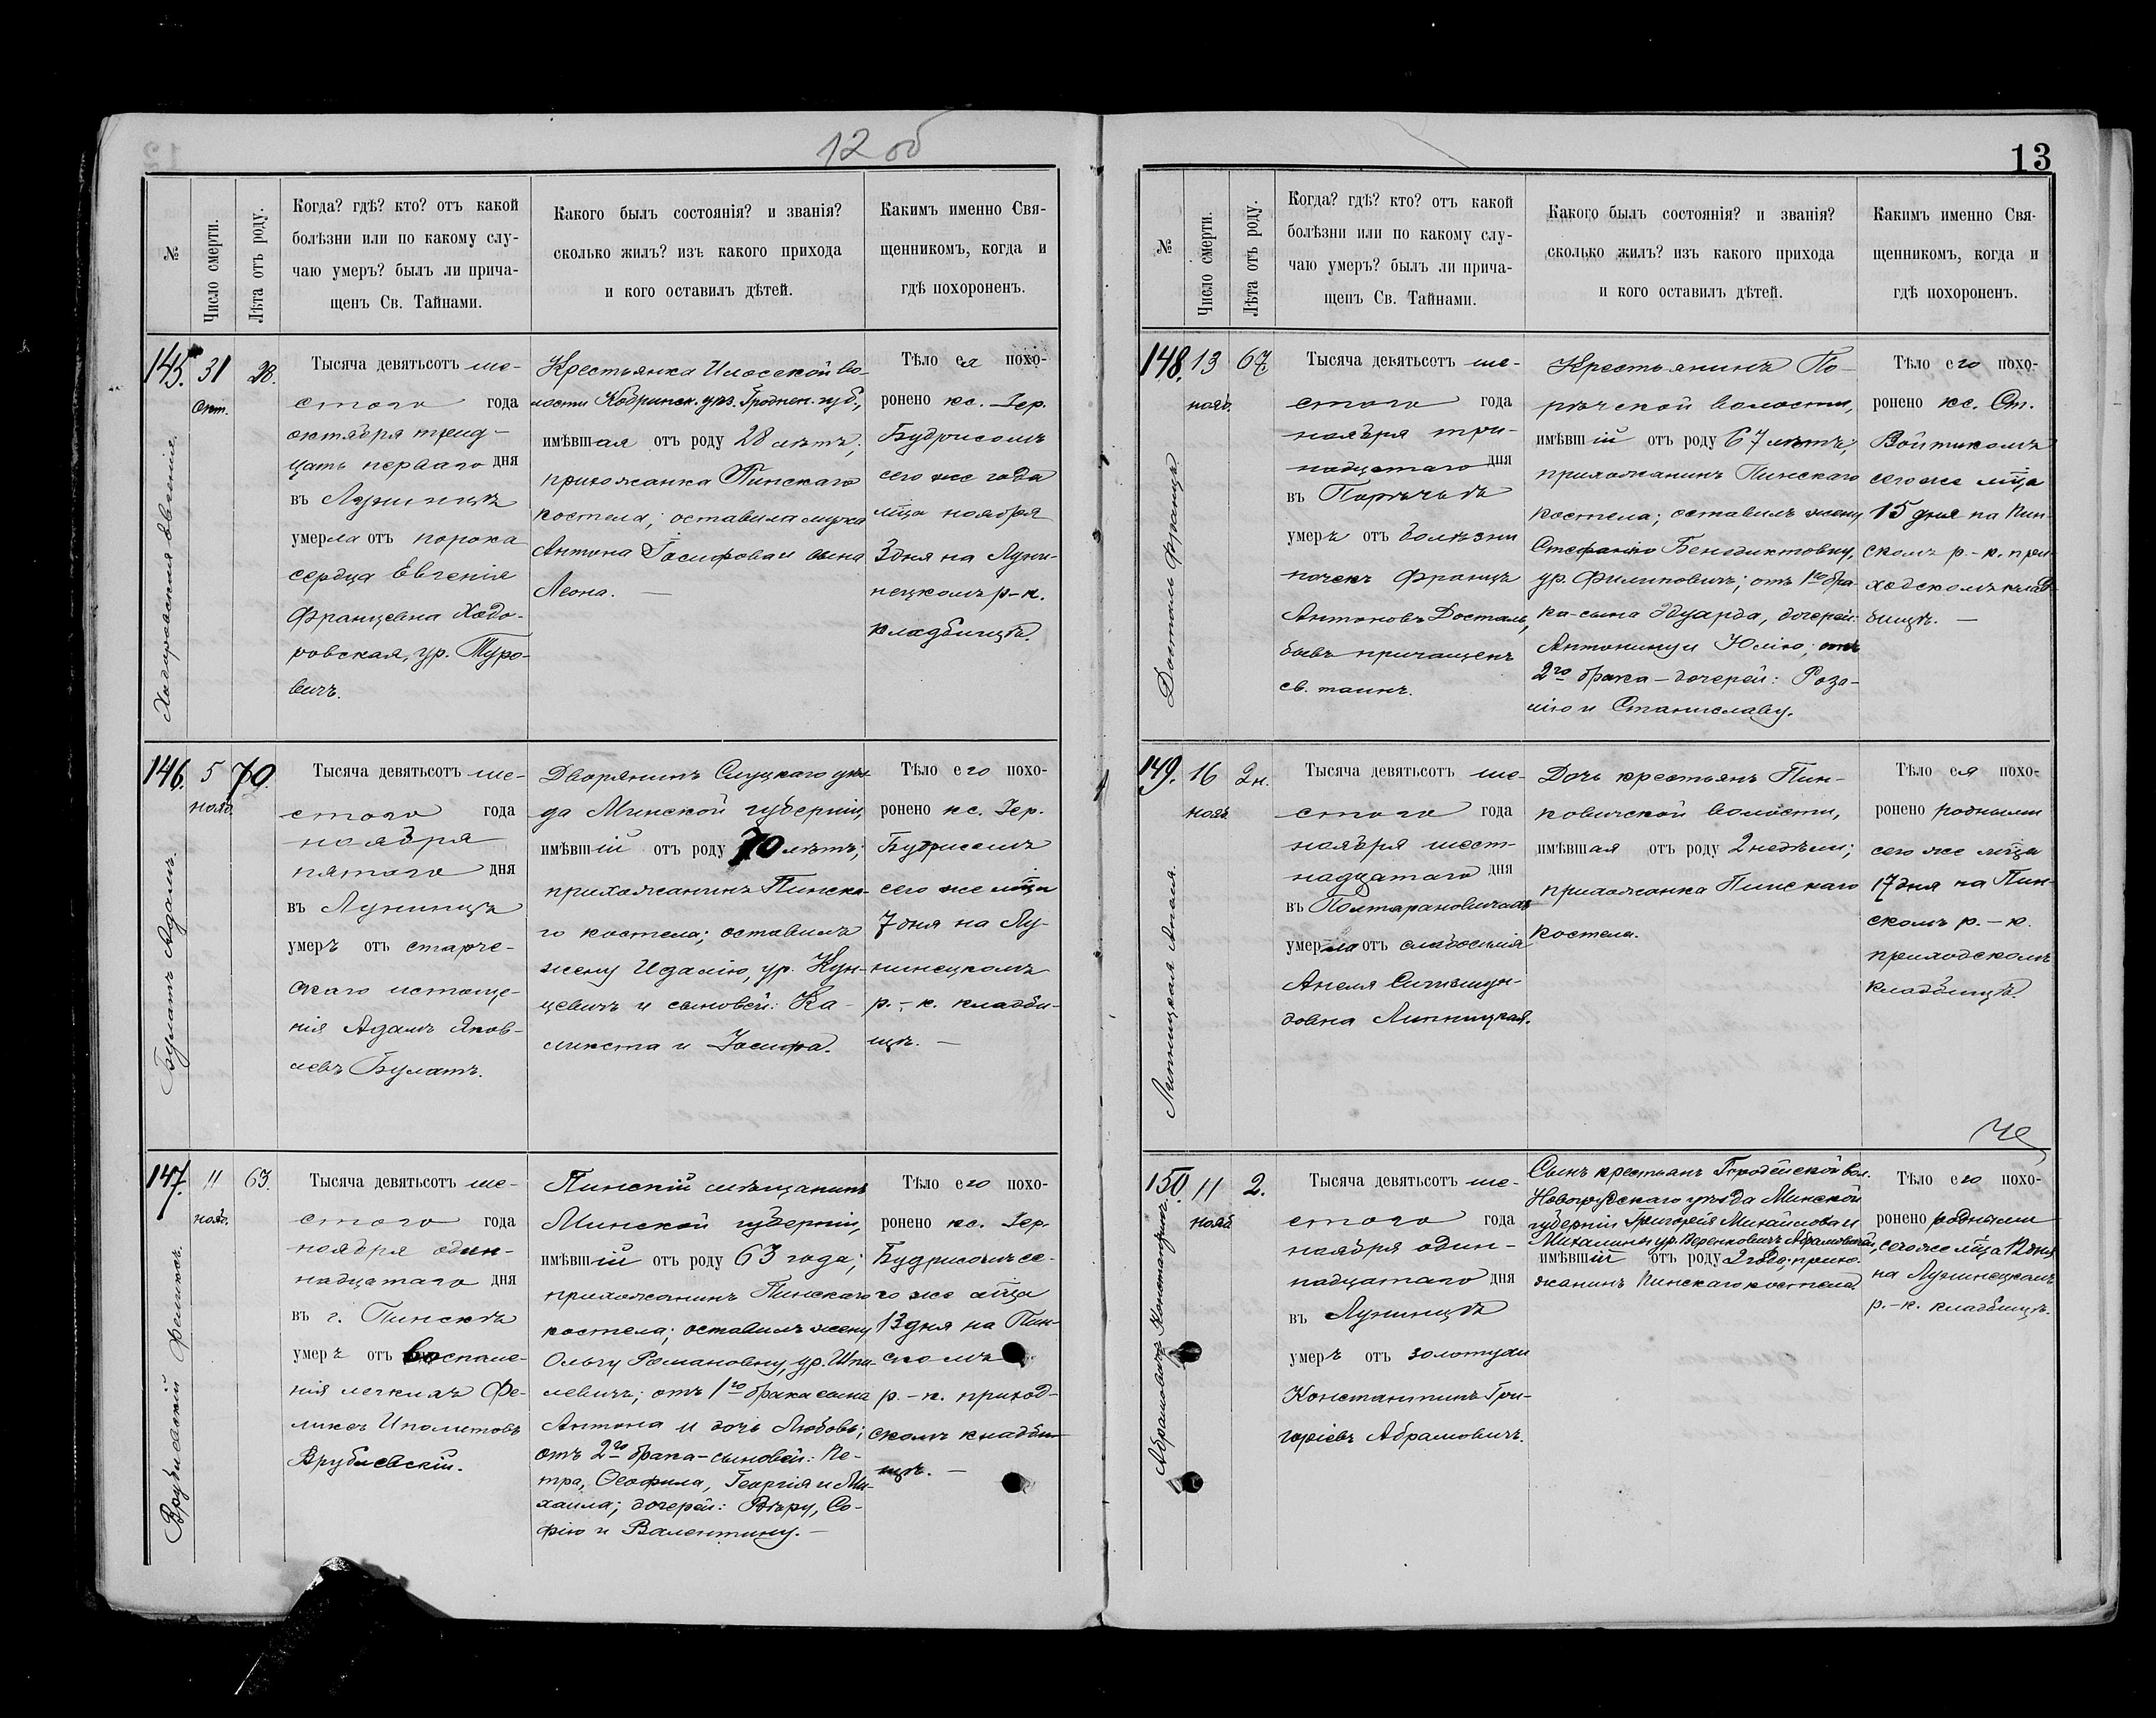 12 об
№
Число смерти.
Лѣта отъ роду.
Когда? гдѣ? кто? отъ какой
болѣзни или по какому слу-
чаю умеръ? былъ ли прича-
щенъ Св. Тайнами.
Какого былъ состоянія? и званія?
сколько жилъ? изъ какого прихода
и кого оставилъ дѣтей.
Какимъ именно Свя-
щенникомъ, когда и
гдѣ похороненъ.
145.
31
Окт.
28.
Ходоровская Евгенія.
Тысяча девятьсотъ ше-
стого года
октября трид-
цать перваго дня
въ Лунинцѣ
умерла отъ порока
сердца Евгенія
Францевна Ходо-
ровская, ур. Туро-
вичъ.
Крестьянка Илосской во-
лости Кобринск. уѣз. Гроднен. губ.,
имѣвшая отъ роду 28 лѣтъ;
прихожанка Пинскаго
костела; оставила мужа
Антона Іосифова и сына
Леона. —
Тѣло ея похо-
ронено кс. Іер.
Будрисомъ
сего же года
мѣца ноября
3 дня на Луни-
нецкомъ р-к.
кладбищѣ.
146.
5
нояб.
70.
Булатъ Адамъ.
Тысяча девятьсотъ ше-
стого года
ноября
пятого дня
въ Лунинцѣ
умеръ отъ старче-
скаго истоще-
нія Адамъ Яков-
левъ Булатъ.
Дворянинъ Слуцкаго уѣз-
да Минской губерніи,
имѣвшій отъ роду 70 лѣтъ;
прихожанинъ Пинска-
го костела; оставилъ
жену Идалію, ур. Кун-
цевичъ и сыновей: Ка-
ликста и Іосифа.
Тѣло его похо-
ронено кс. Іер.
Будрисомъ
сего же мѣца
7 дня на Лу-
нинецкомъ
р.-к. кладби-
щѣ. —
147.
11
нояб.
63.
Врублевскій Феликсъ.
Тысяча девятьсотъ ше-
стого года
ноября один-
надцатаго дня
въ г. Пинскѣ
умеръ отъ воспале-
нія легкихъ Фе-
ликсъ Иполитовъ
Врублевскій.
Пинскій мѣщанинъ
Минской губерніи,
имѣвшій отъ роду 63 года;
прихожанинъ Пинскаго
костела; оставилъ жену
Ольгу Романовну, ур. Шпа-
левичъ; отъ 1го брака сына
Антона и дочь Любовь;
отъ 2го брака - сыновей: Пе-
тра, Ѳеофила, Георгія и Ми-
хаила; дочерей: Вѣру, Со-
фію и Валентину. —
Тѣло его похо-
ронено кс. Іер.
Будрисомъ се-
го же мѣца
13 дня на Пин-
скомъ
р.-к. приход-
скомъ кладби-
щѣ. —
13
№
Число смерти.
Лѣта отъ роду.
Когда? гдѣ? кто? отъ какой
болѣзни или по какому слу-
чаю умеръ? былъ ли прича-
щенъ Св. Тайнами.
Какого былъ состоянія? и званія?
сколько жилъ? изъ какого прихода
и кого оставилъ дѣтей.
Какимъ именно Свя-
щенникомъ, когда и
гдѣ похороненъ.
148.
13
нояб.
67.
Досталь Францъ.
Тысяча девятьсотъ ше-
стого года
ноября три-
надцатаго дня
въ Порѣчьѣ
умеръ отъ болѣзни
почекъ Францъ
Антоновъ Досталь,
бывъ причащенъ
св. таинъ.
Крестьянинъ По-
рѣчской волости,
имѣвшій отъ роду 67 лѣтъ;
прихожанинъ Пинскаго
костела; оставилъ жену
Стефанію Бенедиктовну,
ур. Филиповичъ; отъ 1го бра-
ка - сына Эдуарда, дочерей:
Антонину и Юлію; отъ
2го брака - дочерей: Роза-
лію и Станиславу.
Тѣло его похо-
ронено кс. Ст.
Войтикомъ
сего же мѣца
15 дня на Пин-
скомъ р.-к. при-
ходскомъ клад-
бищѣ. —
149.
16
нояб.
2 н.
Липницкая Анеля.
Тысяча девятьсотъ ше-
стого года
ноября шест-
надцатаго дня
въ Полтарановичахъ
умерла отъ слабосилія
Анеля Сигизмун-
довна Липницкая.
Дочь крестьянъ Пин-
ковичской волости,
имѣвшая отъ роду 2 недѣли;
прихожанка Пинскаго
костела.
Тѣло ея похо-
ронено родными
сего же мѣца
17 дня на Пин-
скомъ р.-к.
приходскомъ
кладбищѣ.
150.
11
нояб.
2.
Абрамовичъ Константинъ.
Тысяча девятьсотъ ше-
стого года
ноября один-
надцатаго дня
въ Лунинцѣ
умеръ отъ золотухи
Константинъ Гри-
горіевъ Абрамовичъ.
Сынъ крестьянъ Городейской вол.
Новогрудскаго уѣзда Минской
губерніи Григорія Михайлова и
Михалины ур. Веренковичъ Абрамовичей,
имѣвшій отъ роду 2 года; прихо-
жанинъ Пинскаго костела.
Тѣло его похо-
ронено родными
сего же мѣца 12 дня
на Лунинецкомъ
р.-к. кладбищѣ.